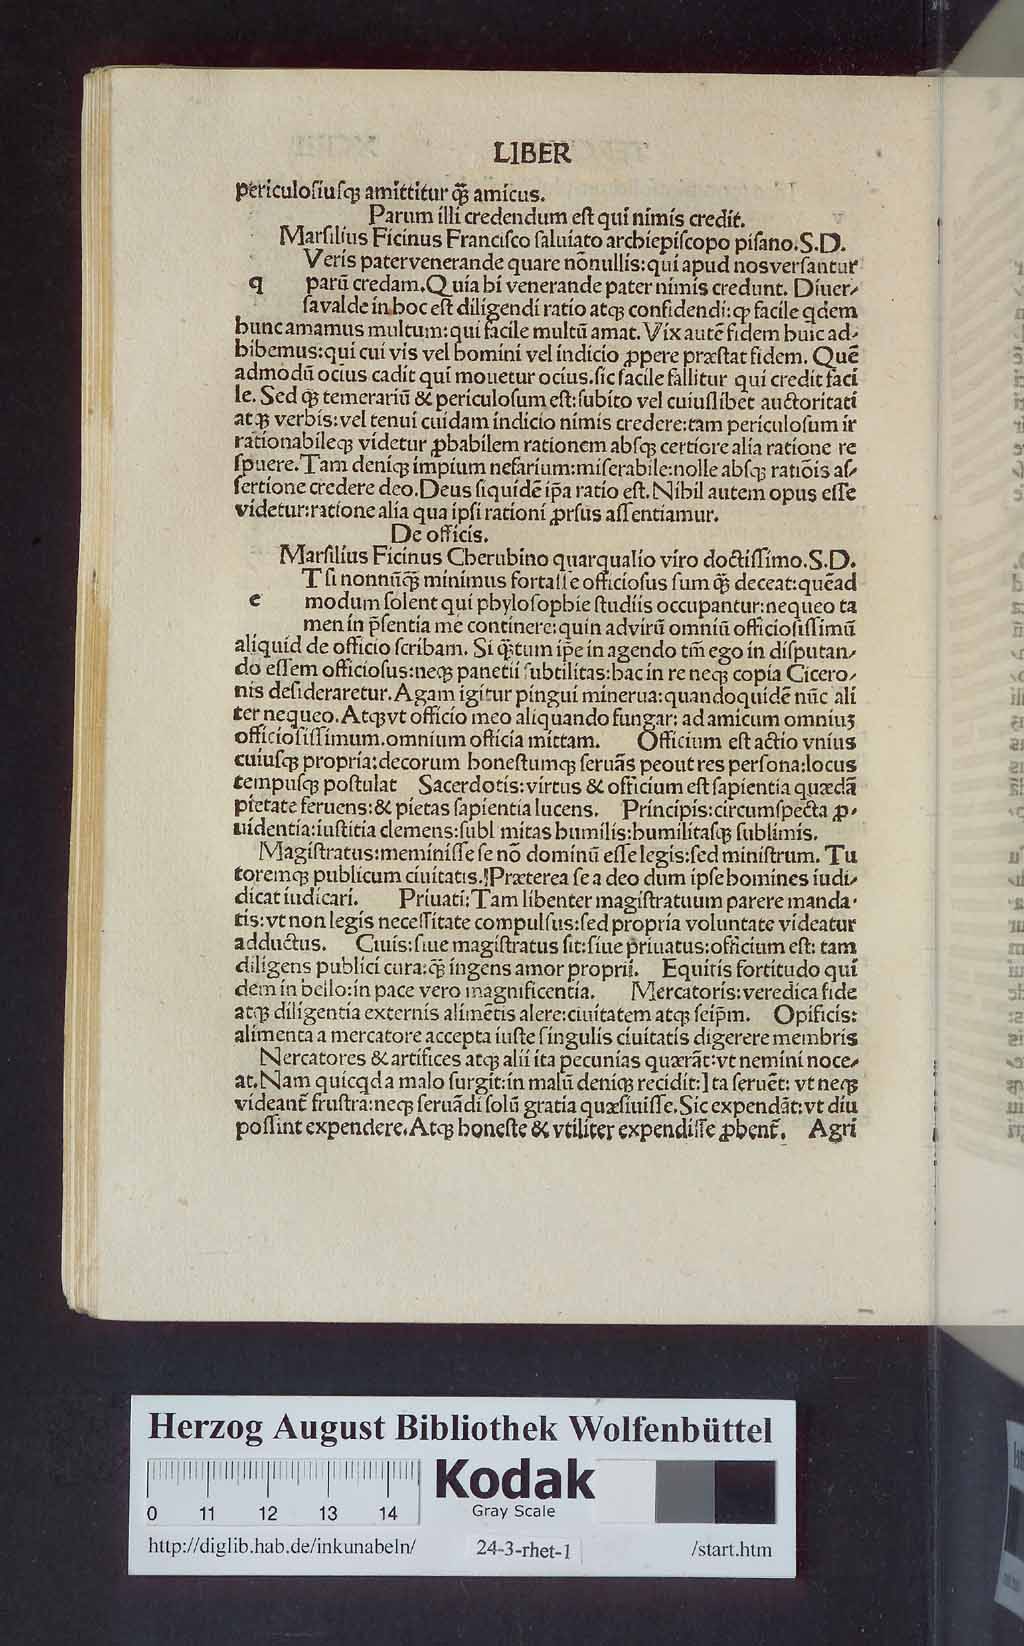 LIBER
periculosiusqꝫ amittitur q̃ꝫ amicus.
Parum illi credendum est qui nimis credit.
Marsilius Ficinus Francisco saluiato archiepiscopo pisano.S.D.
Veris pater venerande quare nõnullis:qui apud nos versantur
q parũ credam.Quia hi venerande pater nimis credunt. Diuer⸗
sa valde in hoc est diligendi ratio atqꝫ confidendi:qꝫ facile qdem
hunc amamus multum:qui facile multũ amat. Vix autẽ fidem huic ad⸗
hibemus:qui cui vis vel homini vel indicio ꝓpere præstat fidem. Quẽ
admodũ ocius cadit qui mouetur ocius.sic facile fallitur qui credit faci
le. Sed q̃ꝫ temerariũ & periculosum est:subito vel cuiuslibet auctoritati
atqꝫ verbis:vel tenui cuidam indicio nimis credere:tam periculosum ir
rationabileqꝫ videtur ꝓbabilem rationem absqꝫ certiore alia ratione re
spuere.Tam deniqꝫ impium nefarium:miserabile:nolle absqꝫ ratiõis as⸗
sertione credere deo.Deus siquidẽ ip̃a ratio est.Nihil autem opus esse
videtur:ratione alia qua ipsi rationi ꝓrsus assentiamur.
De officis.
Marsilius Ficinus Cherubino quarqualio viro doctissimo.S.D.
Tsi nonnũq̃ꝫ minimus fortasse officiosus sum q̃ꝫ deceat:quẽad
e modum solent qui phylosophie studiis occupantur:nequeo ta
men in p̃sentia me continere:quin ad virũ omniũ officiosissimũ
aliquid de officio scribam. Si q̃ꝫtum ip̃e in agendo tm̃ ego in disputan⸗
do essem officiosus:neqꝫ panetii subtilitas:hac in re neqꝫ copia Cicero⸗
nis desideraretur.Agam igitur pingui minerua:quandoquidẽ nũc ali
ter nequeo.Atqꝫ vt officio meo aliquando fungar: ad amicum omniuꝫ
officiosissimum.omnium officia mittam. Officium est actio vnius
cuiusqꝫ propria:decorum honestumqꝫ seruãs peout res persona:locus
tempusqꝫ postulat Sacerdotis:virtus & officium est sapientia quædã
pietate feruens:& pietas sapientia lucens. Principis:circumspecta ꝓ⸗
uidentia:iustitia clemens:subl mitas humilis:humilitasqꝫ sublimis.
Magistratus:meminisse se nõ dominũ esse legis:sed ministrum. Tu
toremqꝫ publicum ciuitatis.Præterea se a deo dum ipse homines iudi⸗
dicat iudicari. Priuati:Tam libenter magistratuum parere manda⸗
tis:vt non legis necessitate compulsus:sed propria voluntate videatur
adductus. Ciuis:siue magistratus sit:siue priuatus:officium est: tam
diligens publici cura:q̃ꝫ ingens amor proprii. Equitis fortitudo qui
dem in bello:in pace vero magnificentia. Mercatoris:veredica fide
atqꝫ diligentia externis alimẽtis alere:ciuitatem atqꝫ seip̃m. Opificis:
alimenta a mercatore accepta iuste singulis ciuitatis digerere membris
Nercatores & artifices atqꝫ alii ita pecunias quærãt:vt nemini noce⸗
at.Nam quicqd a malo surgit:in malũ deniqꝫ recidit:Ita seruẽt: vt neqꝫ
videant̃ frustra:neqꝫ seruãdi solũ gratia quæsiuisse.Sic expendãt:vt diu
possint expendere.Atqꝫ honeste & vtiliter expendisse ꝓbent̃. Agri
Herzog August Bibliothek Wolfenbüttel
0 11 12 13 14
Kodak
Gray Scale
http://diglib.hab.de/inkunabeln/ 24-3-rhet-1 /start.htm